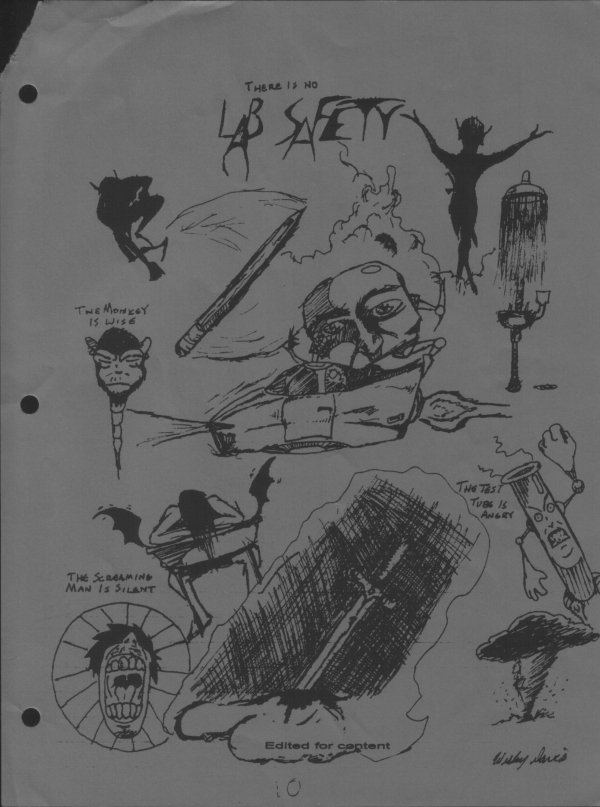 THERE IS NO
LAB SAFETY
THE MONKEY
IS WISE
THE TEST
TUBE IS
ANGRY
THE SCREAMING
MAN IS SILENT
Edited for content
10